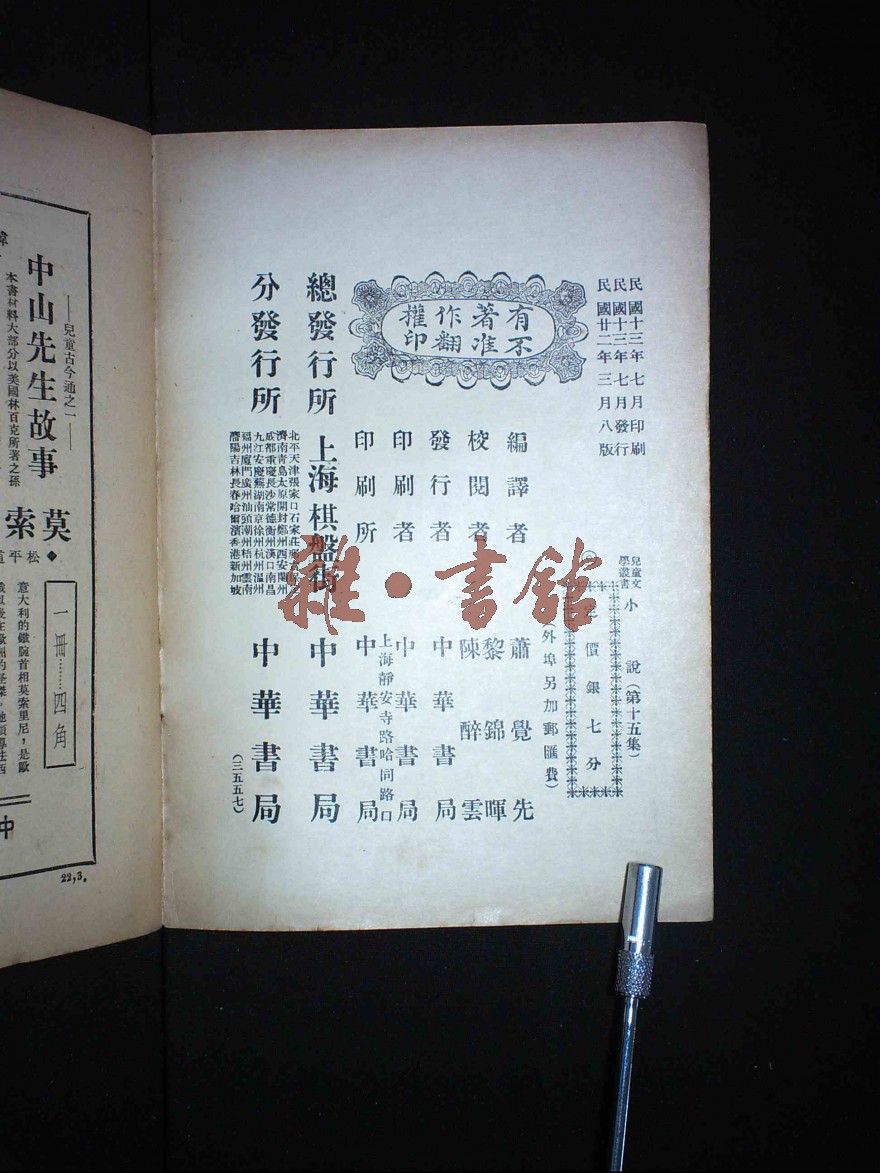 民國十三年七月印刷
民國十三年七月發行
民國廿二年三月八版
兒童文學叢書
小說(第十五集)
定價銀七分
(外埠另加郵匯費)
有著作權
不准翻印
編譯者 蕭覺先
校閱者 黎錦暉
陳醉雲
發行者 中華書局
印刷者 中華書局
上海靜安寺路哈同路口
印刷所 中華書局
總發行所 上海棋盤街 中華書局
分發行所
北平天津張家口石家莊
濟南青島太原開封鄭州西安蘭州
成都重慶長沙常德衡州漢口南昌
九江安慶蕪湖南京徐州杭州溫州
福州廈門廣州汕頭潮州梧州雲南
瀋陽吉林長春哈爾濱香港新加坡
中華書局
(三五五七)
雜·書館
——兒童古今通之一——
中山先生故事
本書材料大部分以美國林百克所著之孫
莫索
◆松平
意大利的鐵腕首相莫索里尼,是歐
一冊……四角
中
22,3.